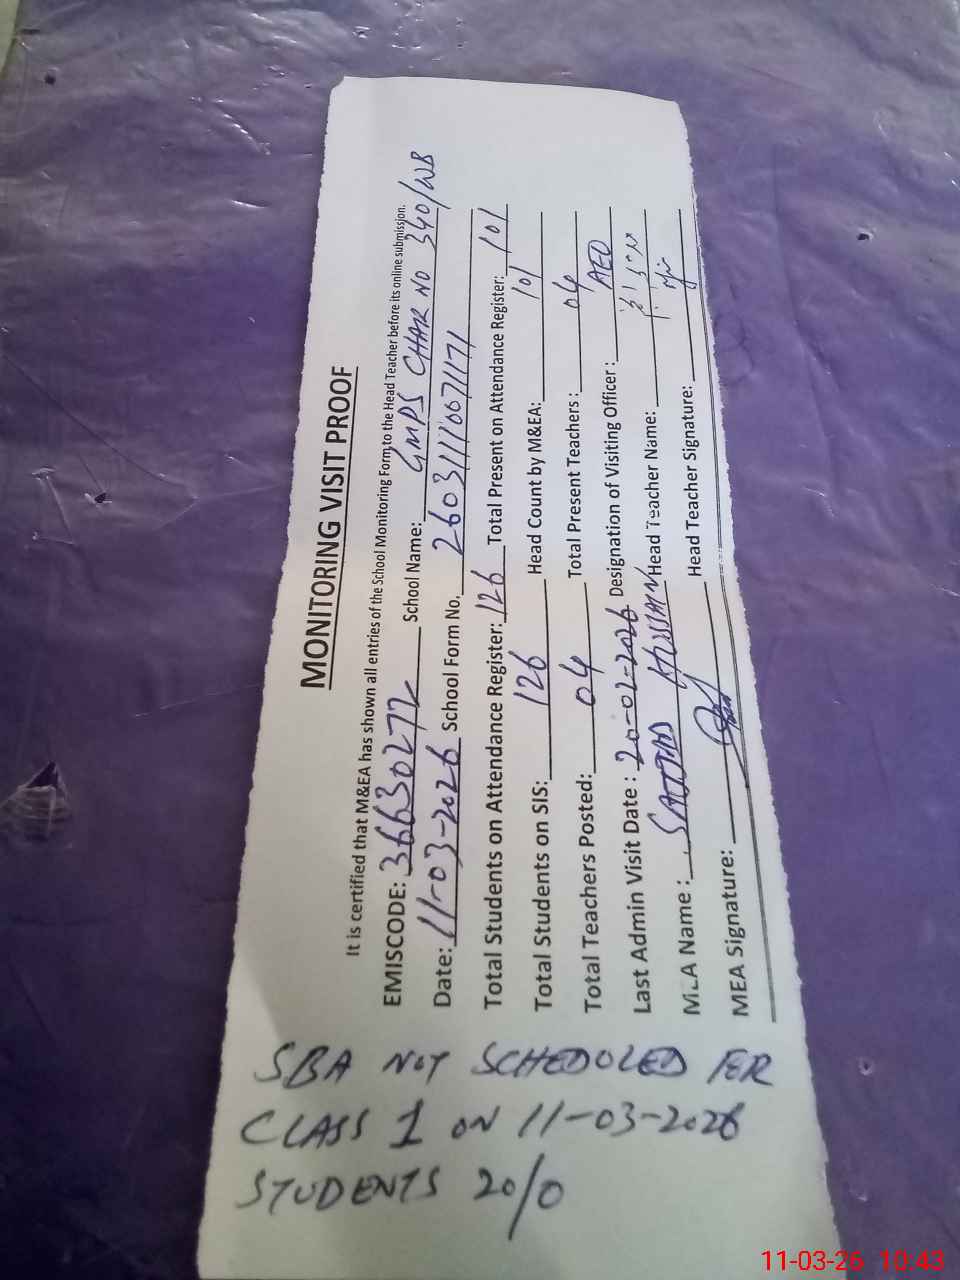 MONITORING VISIT PROOF
It is certified that M&EA has shown all entries of the School Monitoring Form,to the Head Teacher before its online submission.
EMISCODE: 36630272 School Name: GMPS CHAK NO 340/WB
Date: 11-03-2026 School Form No. 260311110071171
Total Students on Attendance Register: 126 Total Present on Attendance Register: 101
Total Students on SIS: 126 Head Count by M&EA: 101
Total Teachers Posted: 04 Total Present Teachers: 04
Last Admin Visit Date : 20-02-2026 Designation of Visiting Officer : AEO
MEA Name : SAJJAD HUSSAIN Head Teacher Name:
MEA Signature: Head Teacher Signature:
SBA NOT SCHEDULED FER
CLASS 1 ON 11-03-2026
STUDENTS 20/0
11-03-26 10:43